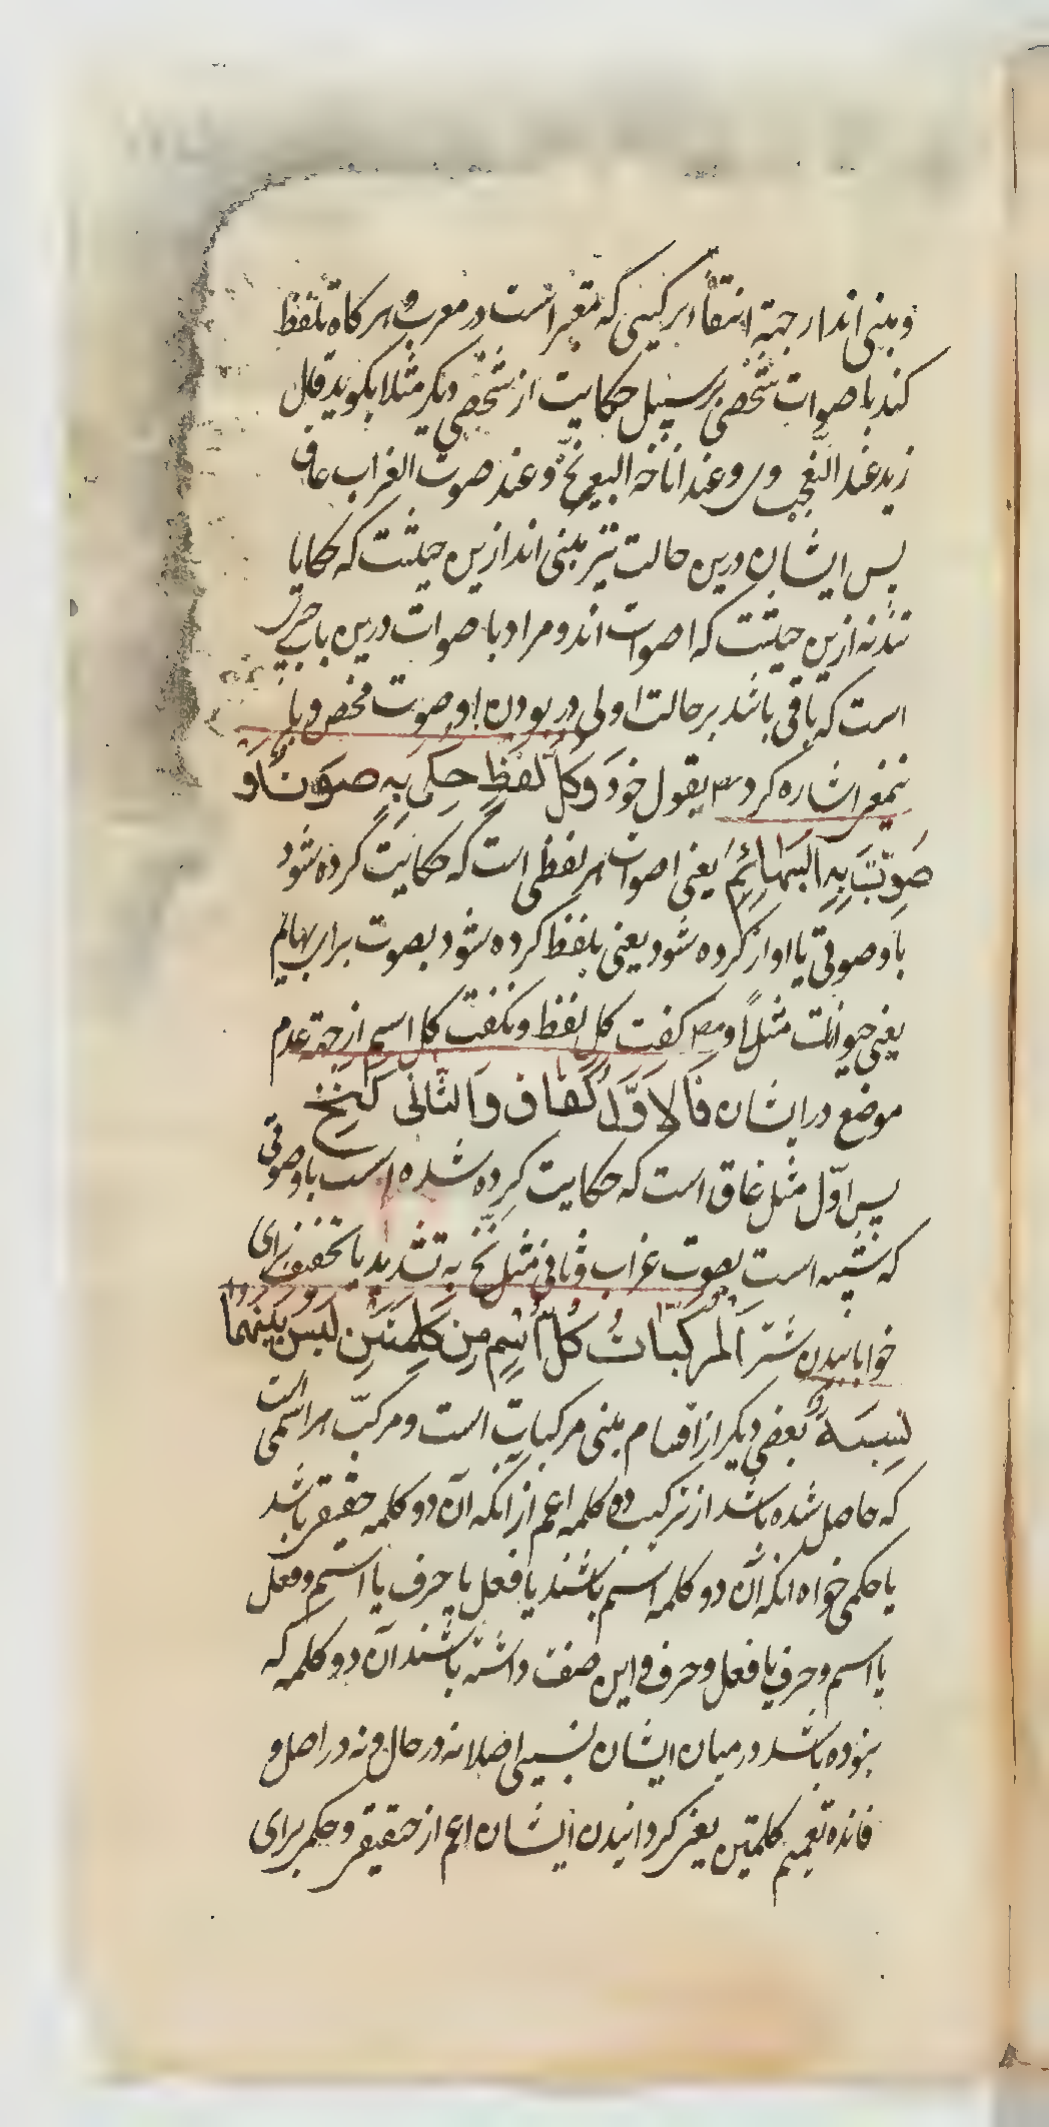 و مبنی اند از جهة انتفاء ترکیبی که معتبر است در معرب و هر کاه تلفظ
کند باصوات شخصی بر سبیل حکایت از شخصی دیکر مثلا بکوید قال
زید عند التعجب وی و عند اناخة البعیر نخّ و عند صوت الغراب غاق
پس ایشان درین حالت نیز مبنی اند ازین حیثیت که حکایا
تند نه ازین حیثیت که اصوات اند و مراد باصوات درین باب چیزی
است که باقی باشد بر حالت اولی در بودن او صوت محض و با
ینمعنی اشاره کرد مص بقول خود وَ كُلُّ لَفظٍ حُكِیَ بِهِ صَوتٌ اَو
صُوِّتَ بِهِ البَهائِمِ یعنی اصوات هر لفظی است که حکایت کرده شود
باو صوتی یا اواز کرده شود یعنی تلفظ کرده شود بصوت برای بهایم
یعنی حیوانات مثلًا و مص کفت کل لفظ و نکفت کل اسم از جهة عدم
موضع در ایشان فَالاَوَّلُ كَغاق وَ الثّانی كَنَخّ
پس اوّل مثل غاق است که حکایت کرده شده است باو صوتی
که شبیه است بصوت غراب و ثانی مثل نخّ به تشدید یا تخفیف برای
خوابانیدن شتر اَلمُرَكَّباتُ كُلُّ اسمٍ مِن كَلِمَتَینِ لَیسَ بَینَهُما
نِسبَةٌ و بعضی دیکر از اقسام مبنی مرکبات است و مرکبّ هر اسمی است
که حاصل شده باشد از ترکیب دو کلمه اعم از انکه آن دو کلمه حقیقی باشد
یا حکمی خواه انکه آن دو کلمه اسم باشند یا فعل یا حرف یا اسم و فعل
یا اسم و حرف یا فعل و حرف و این صفت داشته باشند آن دو کلمه که
نبوده باشد در میان ایشان نسبتی اصلا نه در حال و نه در اصل و
فائده تعمیم کلمتین یعنی کردانیدن ایشان اعم از حقیقی و حکمی برای